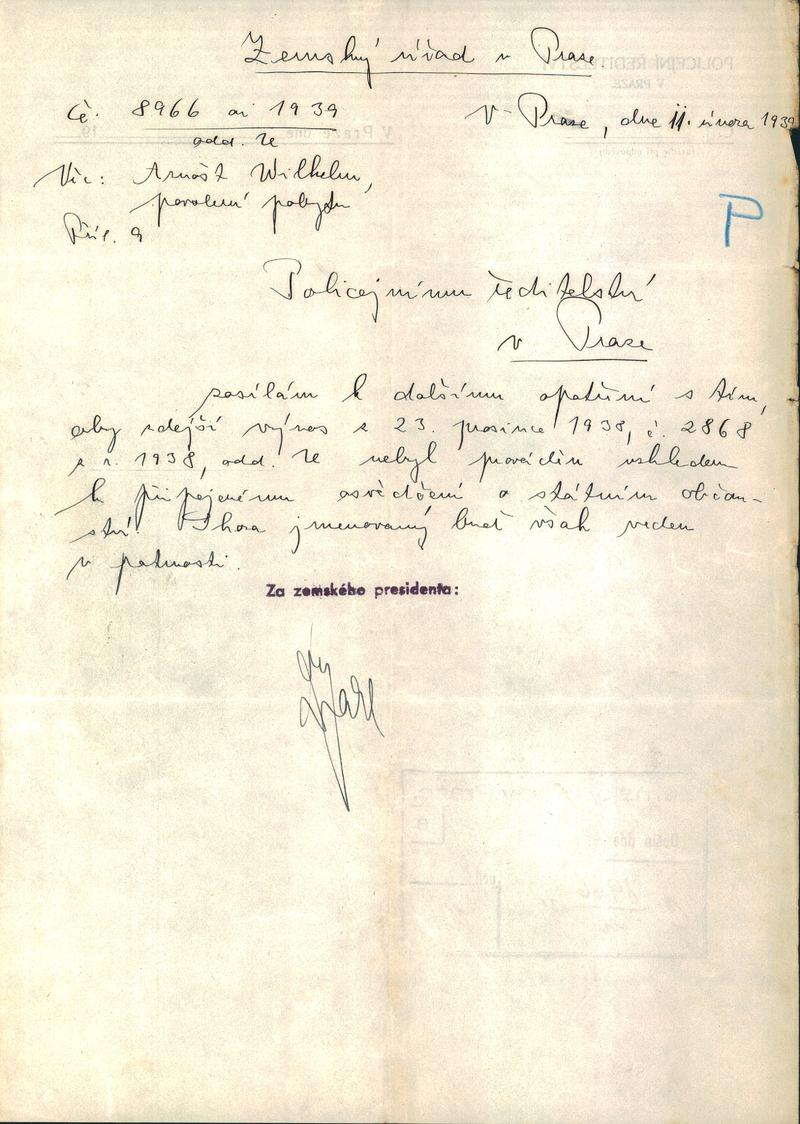 Zemský úřad v Praze.
Čč. 8966 ai 1939
odd. 7e
V Praze, dne 11. února 1939
Věc: Arnošt Wilhelm,
povolení pobytu
Příl. 9
P
Policejnímu ředitelství
v Praze
zasílám k dalšímu opatření s tím,
aby zdejší výnos z 23. prosince 1938, č. 2868
z r. 1938, odd. 7e nebyl prováděn vzhledem
k připojenému osvědčení o státním občan-
ství. Shora jmenovaný buď však veden
v patrnosti.
Za zemského presidenta: